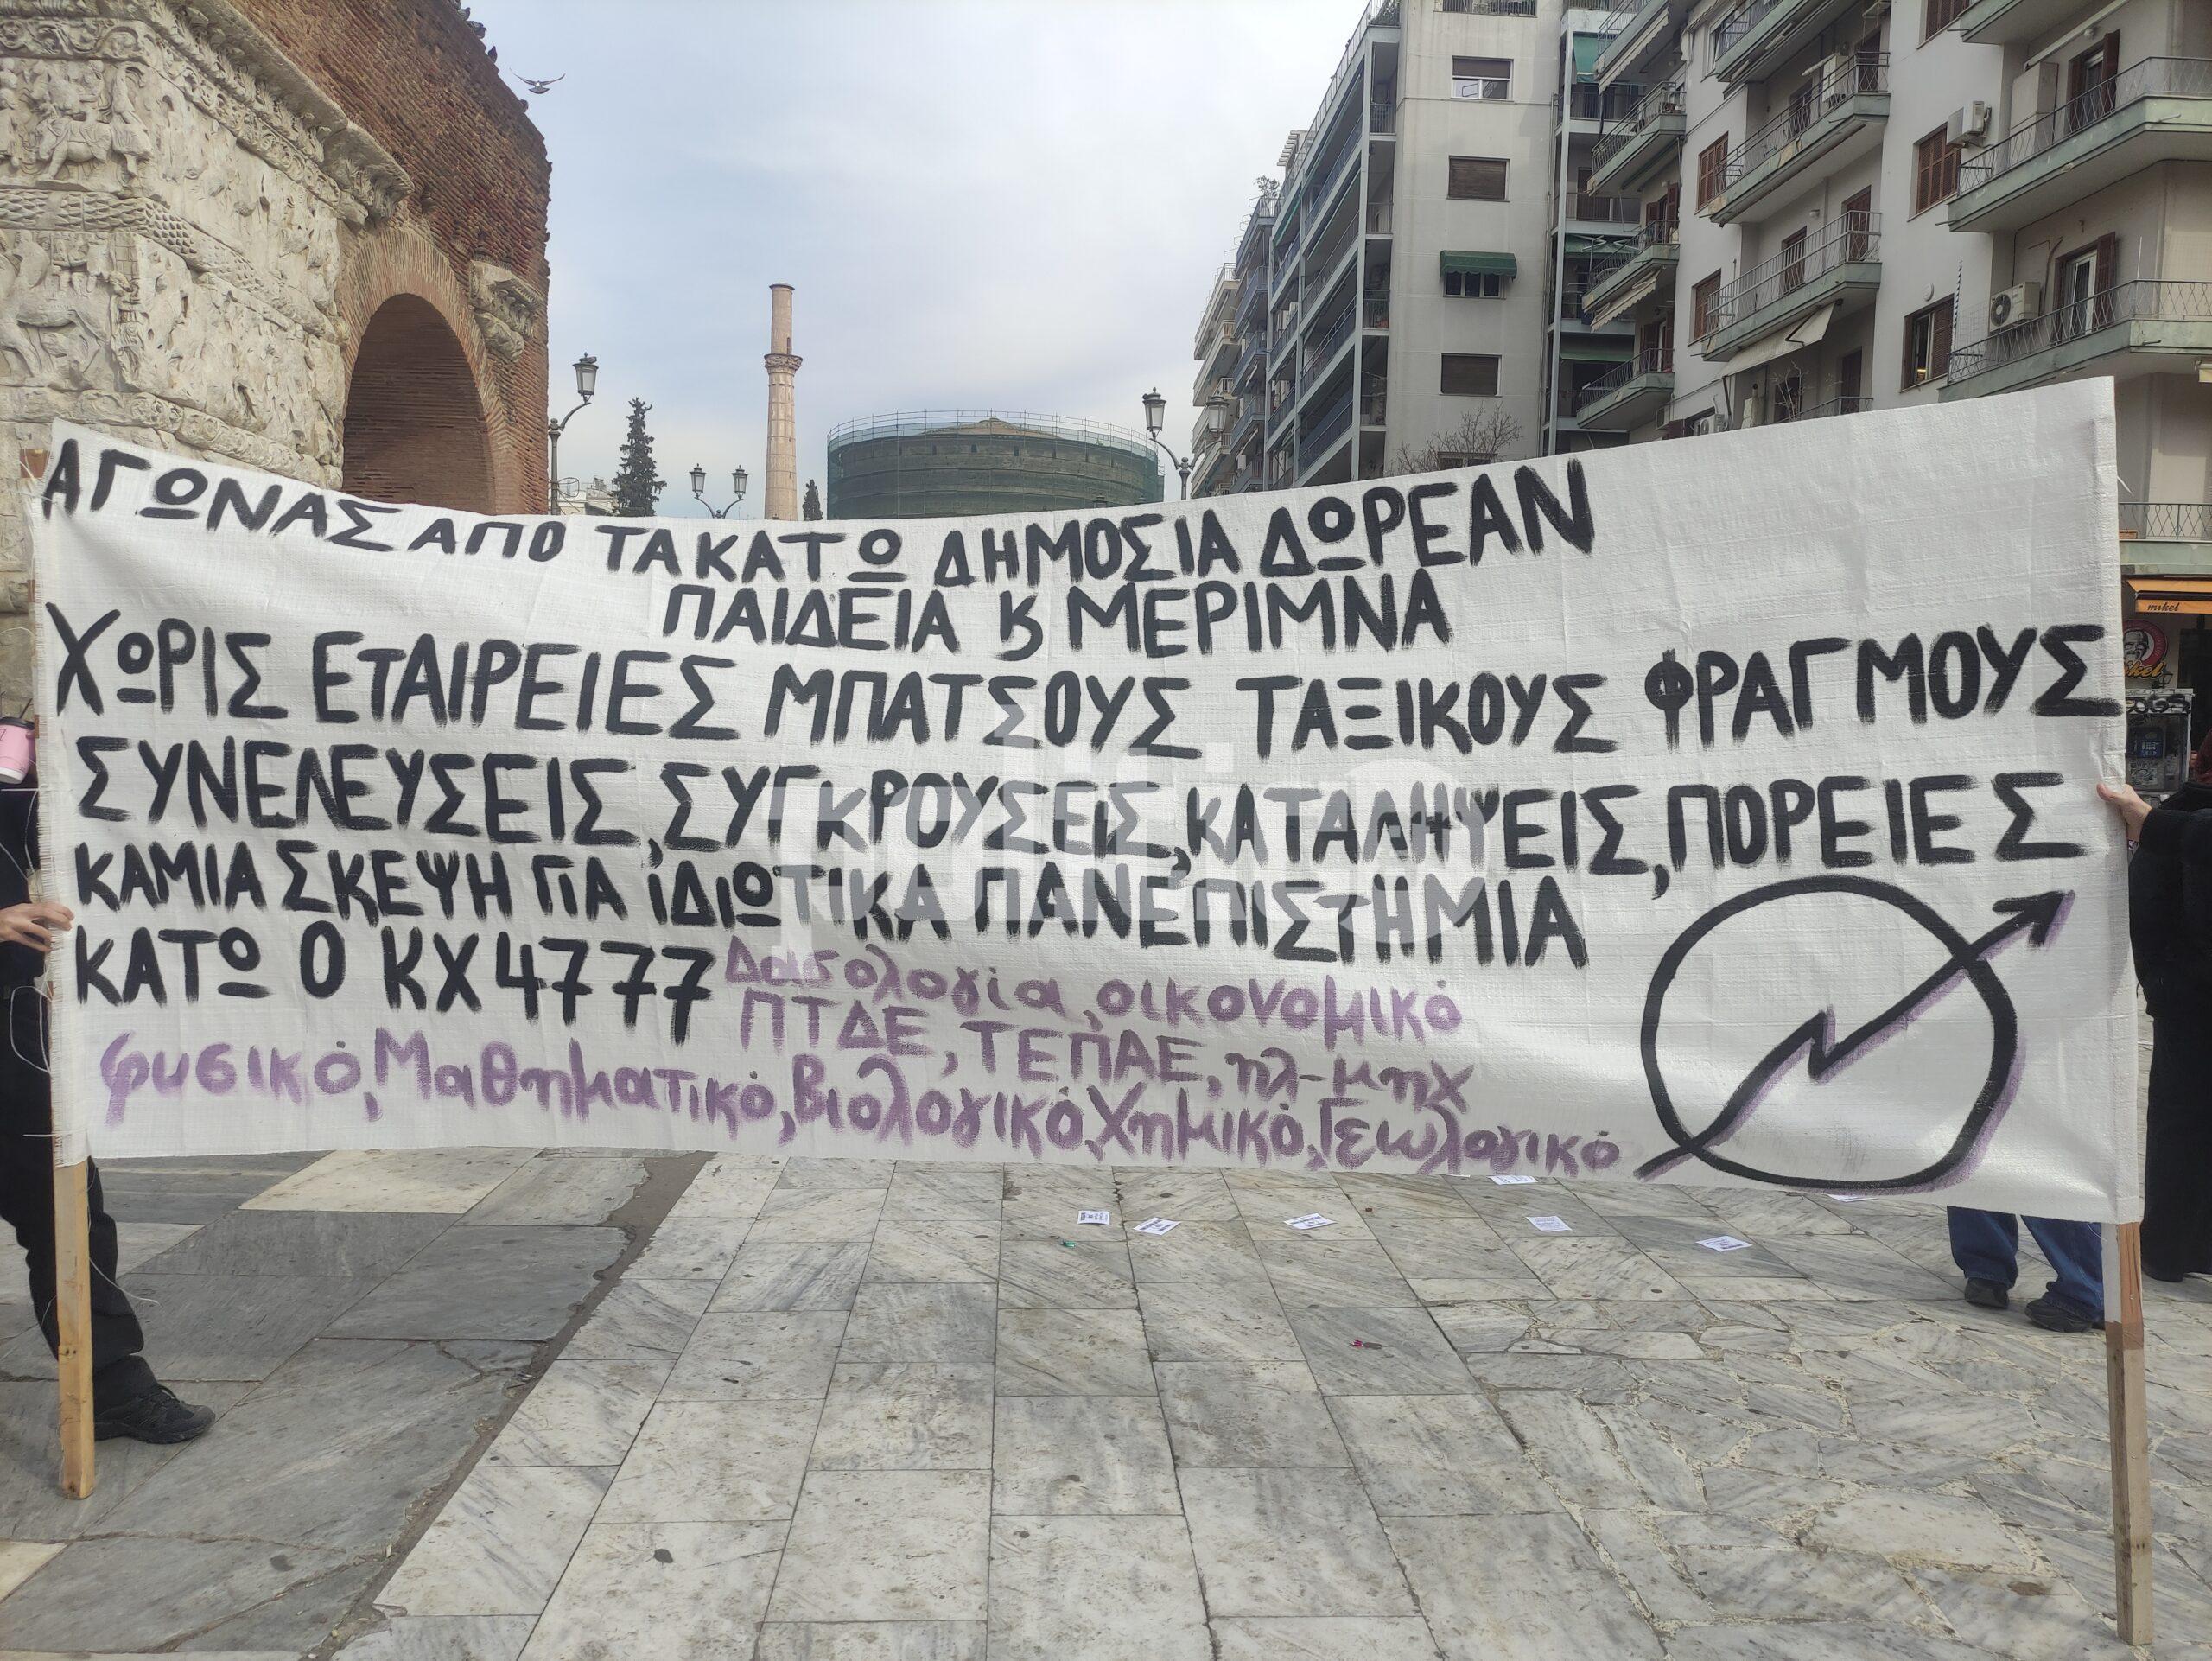 ΑΓΩΝΑΣ ΑΠΟ ΤΑ ΚΑΤΩ ΔΗΜΟΣΙΑ ΔΩΡΕΑΝ
ΠΑΙΔΕΙΑ ϗ ΜΕΡΙΜΝΑ
ΧΩΡΙΣ ΕΤΑΙΡΕΙΕΣ ΜΠΑΤΣΟΥΣ ΤΑΞΙΚΟΥΣ ΦΡΑΓΜΟΥΣ
ΣΥΝΕΛΕΥΣΕΙΣ, ΣΥΓΚΡΟΥΣΕΙΣ, ΚΑΤΑΛΗΨΕΙΣ, ΠΟΡΕΙΕΣ
ΚΑΜΙΑ ΣΚΕΨΗ ΓΙΑ ΙΔΙΩΤΙΚΑ ΠΑΝΕΠΙΣΤΗΜΙΑ
ΚΑΤΩ Ο ΚΧ 4777
Δασολογία, οικονομικό
ΠΤΔΕ, ΤΕΠΑΕ, ηλ-μηχ
φυσικό, Μαθηματικό, Βιολογικό, Χημικό, Γεωλογικό
mikel
mikel